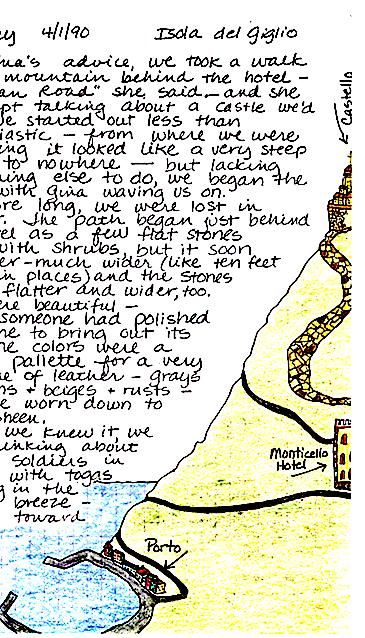 4/1/90 Isola del Giglio
's advice, we took a walk
mountain behind the hotel -
an Road" she said - and she
pt talking about a castle we'd
e started out less than
iastic - from where we were
ing it looked like a very steep
to nowhere - but lacking
hing else to do, we began the
with Gina waving us on.
ore long, we were lost in
r. The path began just behind
el as a few flat stones
with shrubs, but it soon
er - much wider (like ten feet
in places) and the stones
flatter and wider, too.
ere beautiful -
someone had polished
ne to bring out its
he colors were a
pallette for a very
ne of leather - grays
ns + beiges + rusts -
e worn down to
sheen.
we knew it, we
inking about
soldiers in
with togas
g in the
breeze -
toward
Castello
Monticello
Hotel
Porto